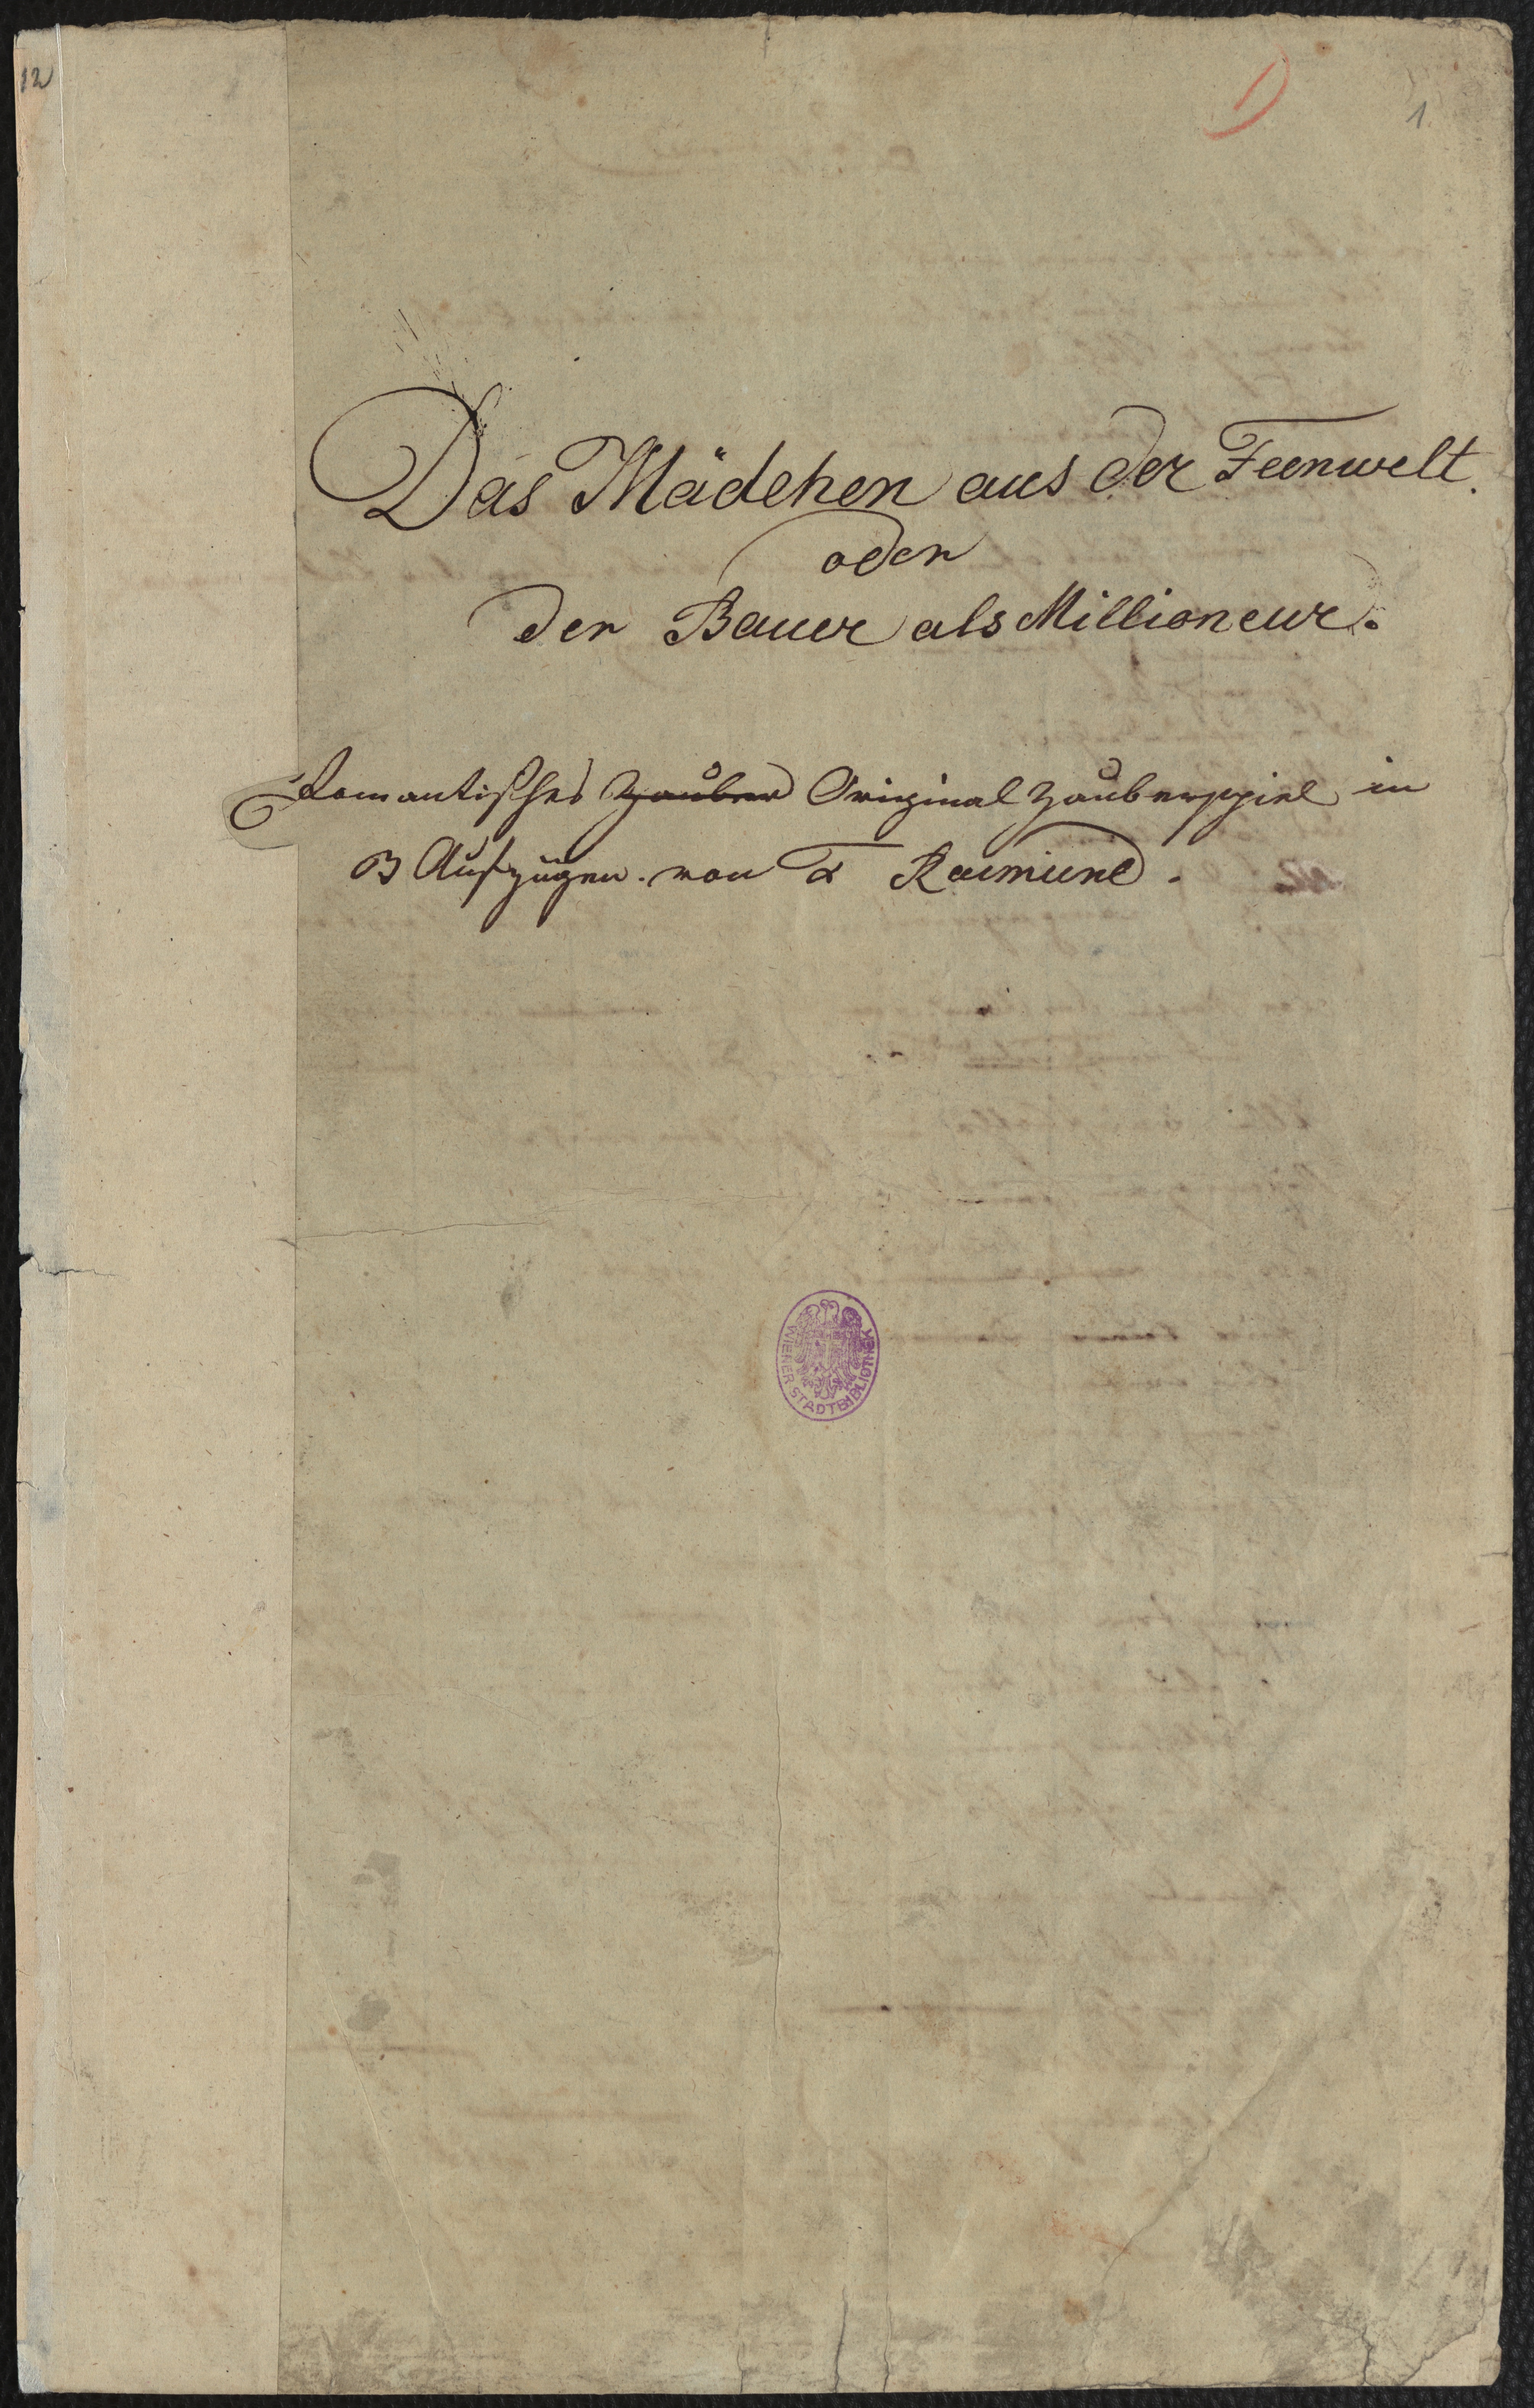 12
1)
1.
Das Mädchen aus der Feenwelt.
oder
der Bauer als Millioneur.
Romantisches Zauber Original Zauberspiel in
3 Aufzügen. von F Raimund.
WIENER STADTBIBLIOTHEK